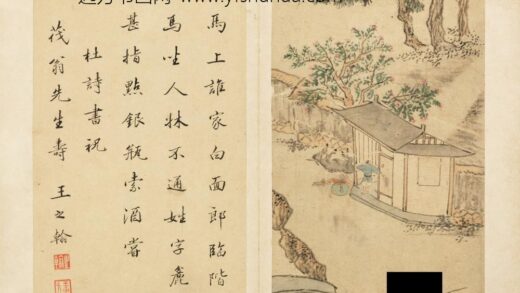 www.yishuhua.com
馬上誰家白面郎臨階
馬坐人牀不通姓字麄
甚指點銀瓶索酒嘗
杜詩書祝
翁先生壽 王之翰